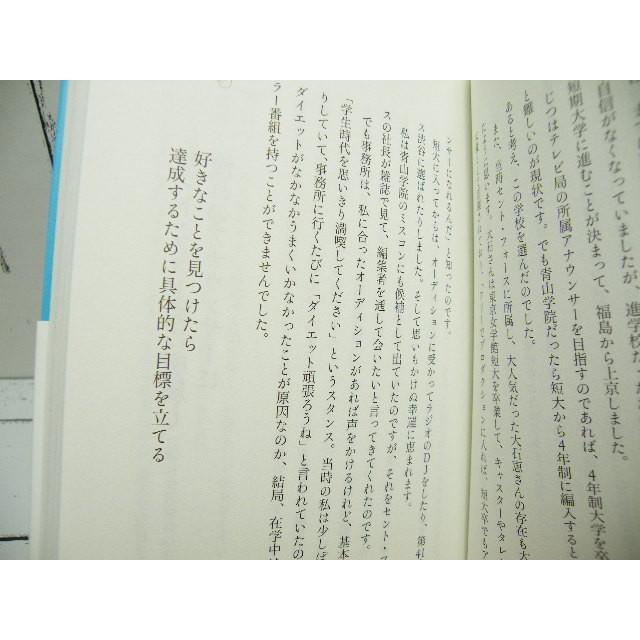 自信がなくなっていました
短期大学に進むことが決まって、福島から上京しました。
じつはテレビ局の所属アナウンサーを目指すのであれば、4年制大学を卒
と難しいのが現状です。でも青山学院だったら短大から4年制に編入すると
あると考え、この学校を選んだのでした。
また、当時セント・フォースに所属し、大人気だった大石恵さんの存在も大
大石さんは東京女学館短大を卒業して、キャスターやタレ
プロダクションに入れば、短大卒でもア
ンサーになれるんだ」と知ったのです。
短大に入ってからは、オーディションに受かってラジオのDJをしたり、第4
ス渋谷に選ばれたりしました。そして思いもかけぬ幸運に恵まれます。
私は青山学院のミスコンにも候補として出ていたのですが、それをセント・フ
スの社長が雑誌で見て、編集者を通して会いたいと言ってきてくれたのです。
でも事務所は、私に合ったオーディションがあれば声をかけるけれど、基本
「学生時代を思いきり満喫してください」というスタンス。当時の私は少しぽ
りしていて、事務所に行くたびに「ダイエット頑張ろうね」と言われていたの
ダイエットがなかなかうまくいかなかったことが原因なのか、結局、在学中
ラー番組を持つことができませんでした。
好きなことを見つけたら
達成するために具体的な目標を立てる